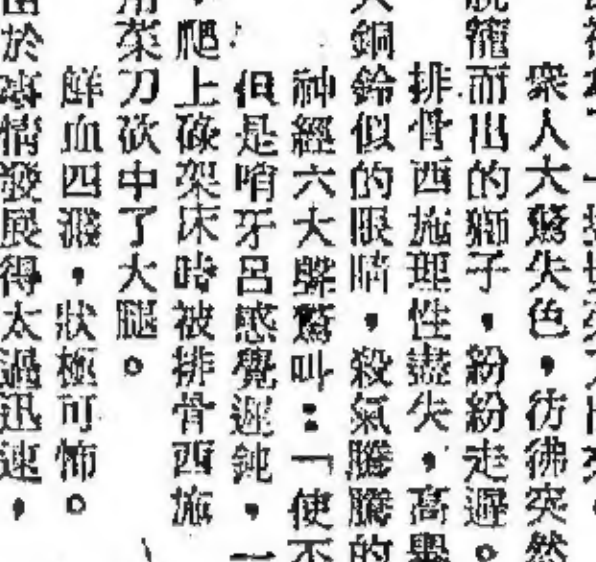 衆人大驚失色，彷彿突然
脫籠而出的獅子，紛紛走避。
排骨西施理性盡失，高舉
大銅鈴似的眼睛，殺氣騰騰的
神經六大聲驚叫：「使不
但是哨牙呂感覺遲鈍，一
爬上碌架床時被排骨西施
用菜刀砍中了大腿。
鮮血四濺，狀極可怖。
由於事情發展得太過迅速，